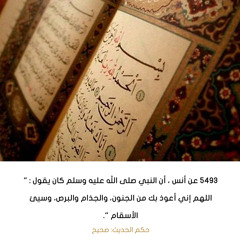 بِسْمِ
5493 عن أنس ، أن النبي صلى الله عليه وسلم كان يقول : "
اللهم إني أعوذ بك من الجنون، والجذام والبرص، وسيئ
الأسقام ".
حكم الحديث: صحيح